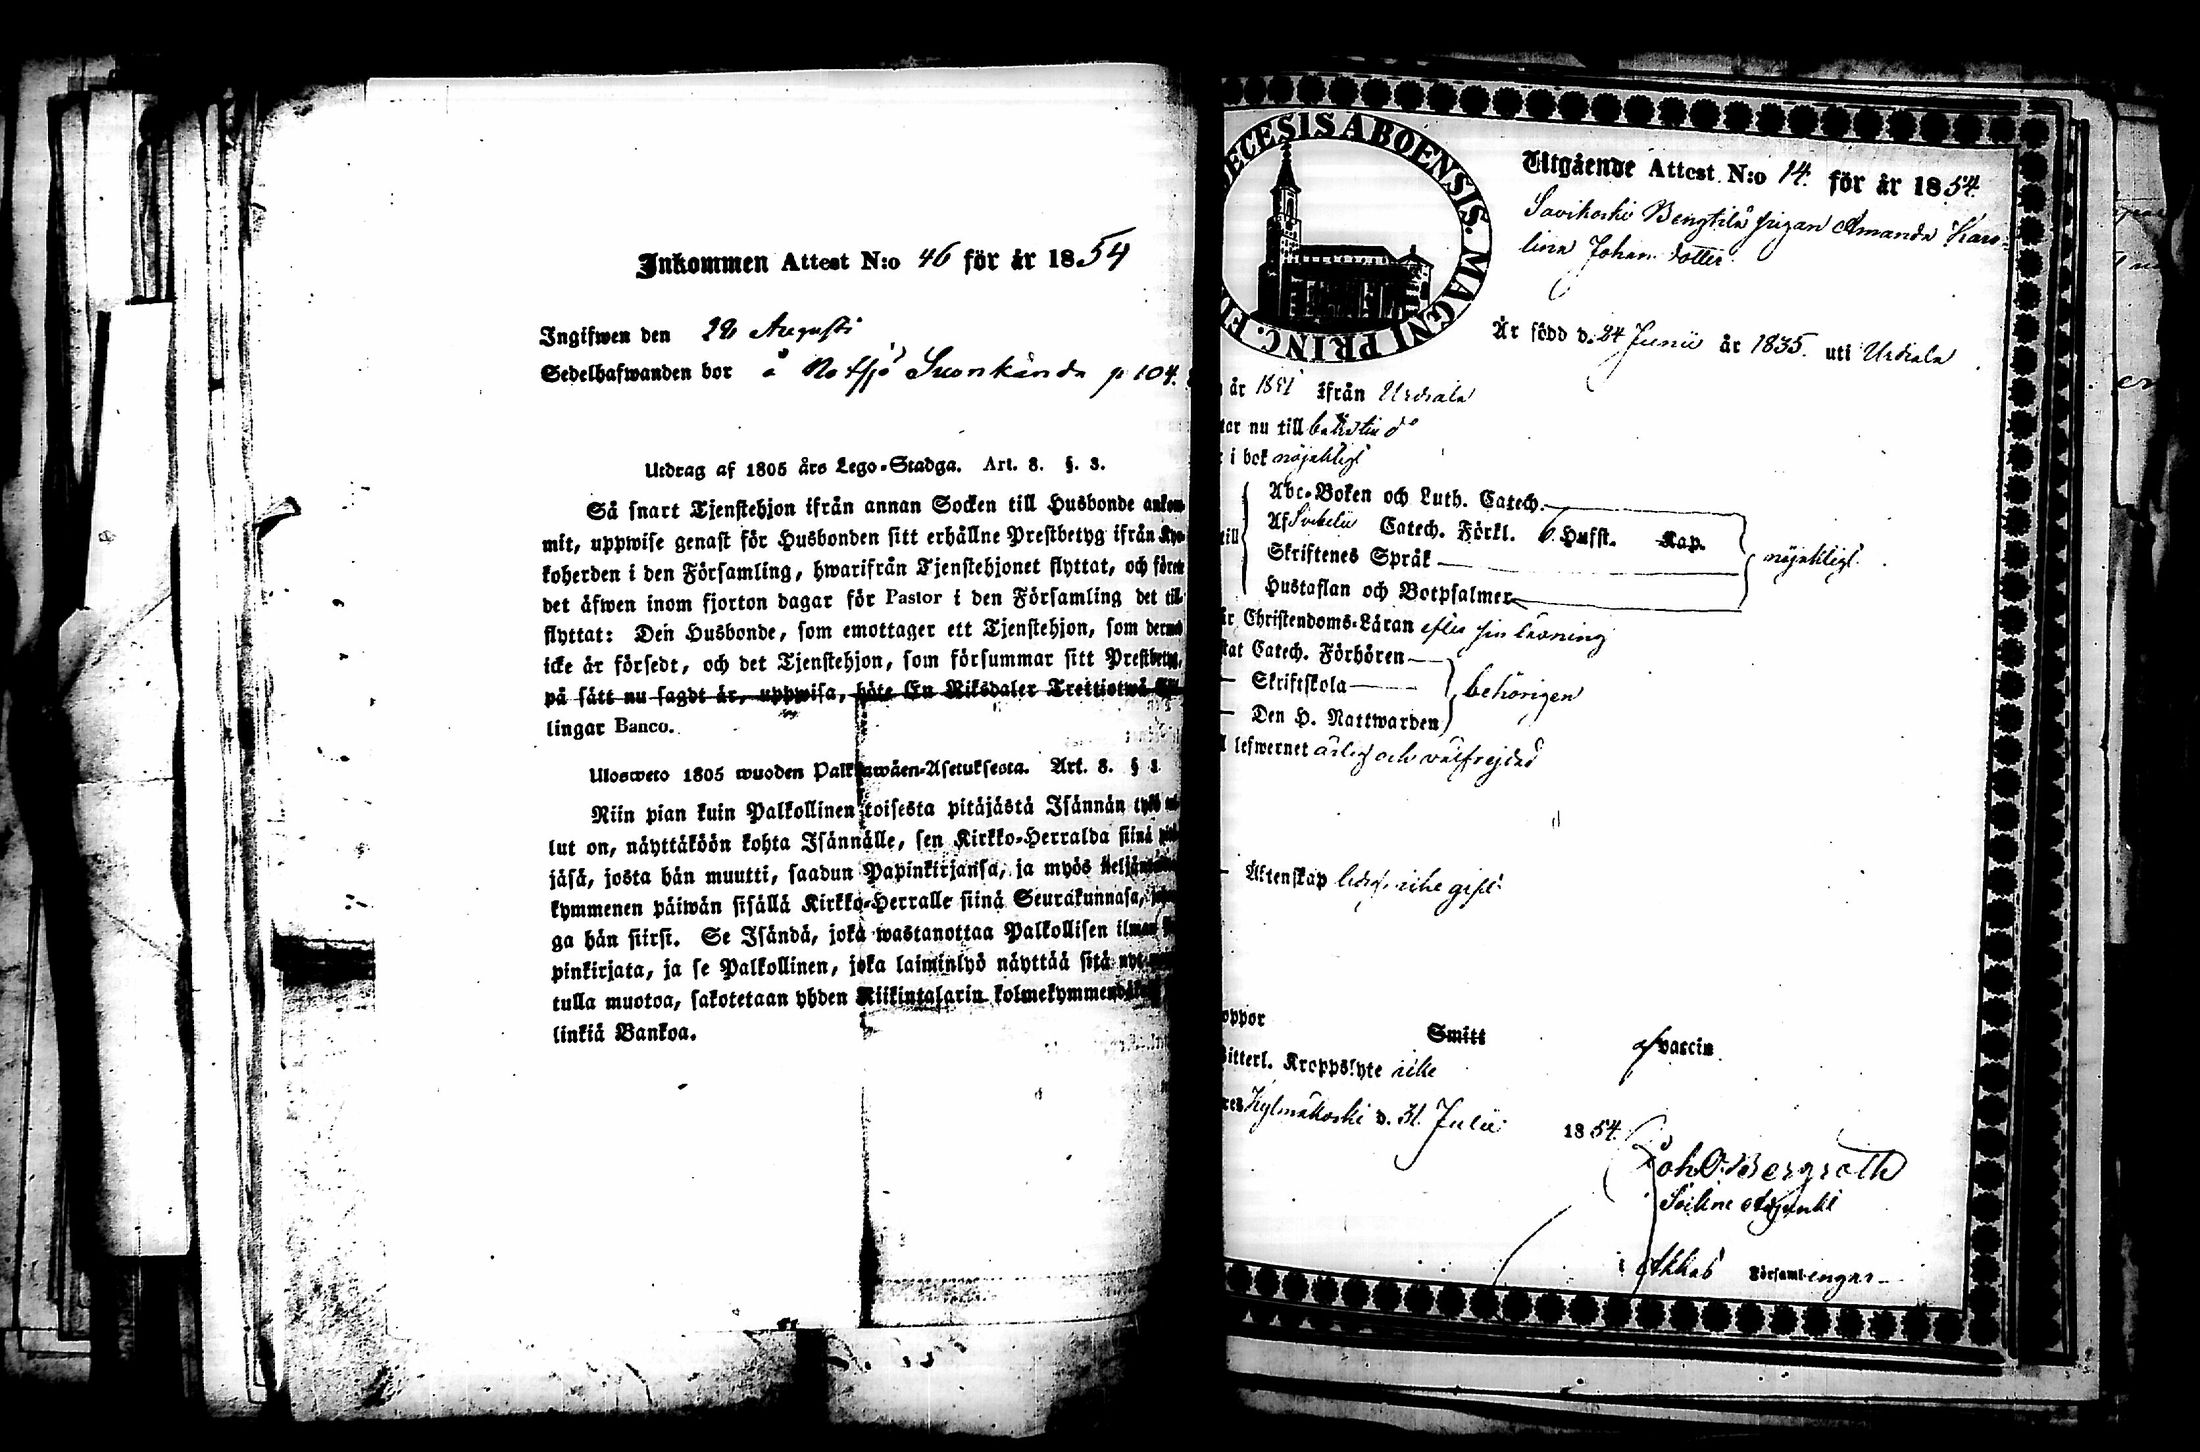 Inkommen Attest N:o 46 för år 1854
Ingifwen den 28 Augusti
Sedelhafwanden bor å Notsjö Suonkända p 104.
Utdrag af 1805 års Lego-Stadga. Art. 8. §. 3.
Så snart Tjenstehjon ifrån annan Socken till Husbonde ankom-
mit, uppwise genast för Husbonden sitt erhållne Prestbetyg ifrån Kyr-
koherden i den Församling, hwarifrån Tjenstehjonet flyttat, och förete
det äfwen inom fjorton dagar för Pastor i den Församling det till-
flyttat: Den Husbonde, som emottager ett Tjenstehjon, som dermed
icke är försedt, och det Tjenstehjon, som försummar sitt Prestbetyg,
på sätt nu sagdt är, uppwisa, böte En Riksdaler Trettiotwå
lingar Banco.
Ulosweto 1805 wuoden Palkkawäen-Asetuksesta. Art. 8. § 3
Niin pian kuin Palkollinen toisesta pitäjästä Isännän työ
lut on, näyttäköön kohta Isännälle, sen Kirkko-Herralda siinä
jäsä, josta hän muutti, saadun Papinkirjansa, ja myös neljän
kymmenen päiwän sisällä Kirkko-Herralle siinä Seurakunnasa,
ga hän siirsi. Se Isändä, joka wastanottaa Palkollisen ilman
pinkirjata, ja se Palkollinen, joka laiminlyö näyttää sitä nyt
tulla muotoa, sakotetaan yhden Riikintalarin kolmekymmendä
linkiä Bankoa.
ECESIS ABOENSIS. MAGNI PRINC. F
Utgående Attest N:o 14. för år 1854.
Savikoski Bengtilä pigan Amanda Karo-
lina Johans dotter
Är född d. 24 Junii år 1835. uti Urdiala
år 1851 ifrån Urdiala
tar nu till
i bok nöjaktligt
Abc-Boken och Luth. Catech.
Af Svebelii Catech. Förkl. 6. Hufst. Kap.
till
Skriftenes Språk
nöjaktligt
Hustaflan och Botpsalmer
år Christendoms-Läran efter sin läsning
tat Catech. Förhören
Skriftskola
behörigen
Den H. Nattwarden
lefwernet ärlig och välfrejdad
Äktenskap ledig, icke gift
oppor Smitt af vaccin
itterl. Kroppslyte icke
res Kylmäkoski d. 31. Julii 1854.
Joh O. Bergroth
Sockne Adjunkt
i Akkas Församlingar